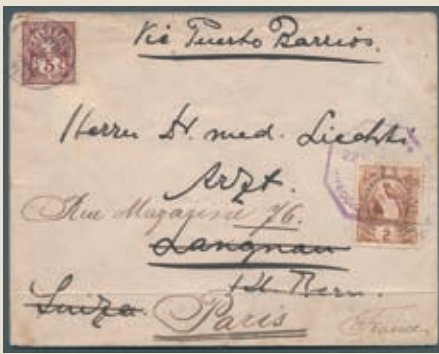 Via Puerto Barrios.
5
Herrn Dr. med. Liechti
Arzt.
Rue Magazine 76.
2
Langnau
Kt. Bern.
Suiza.
Paris